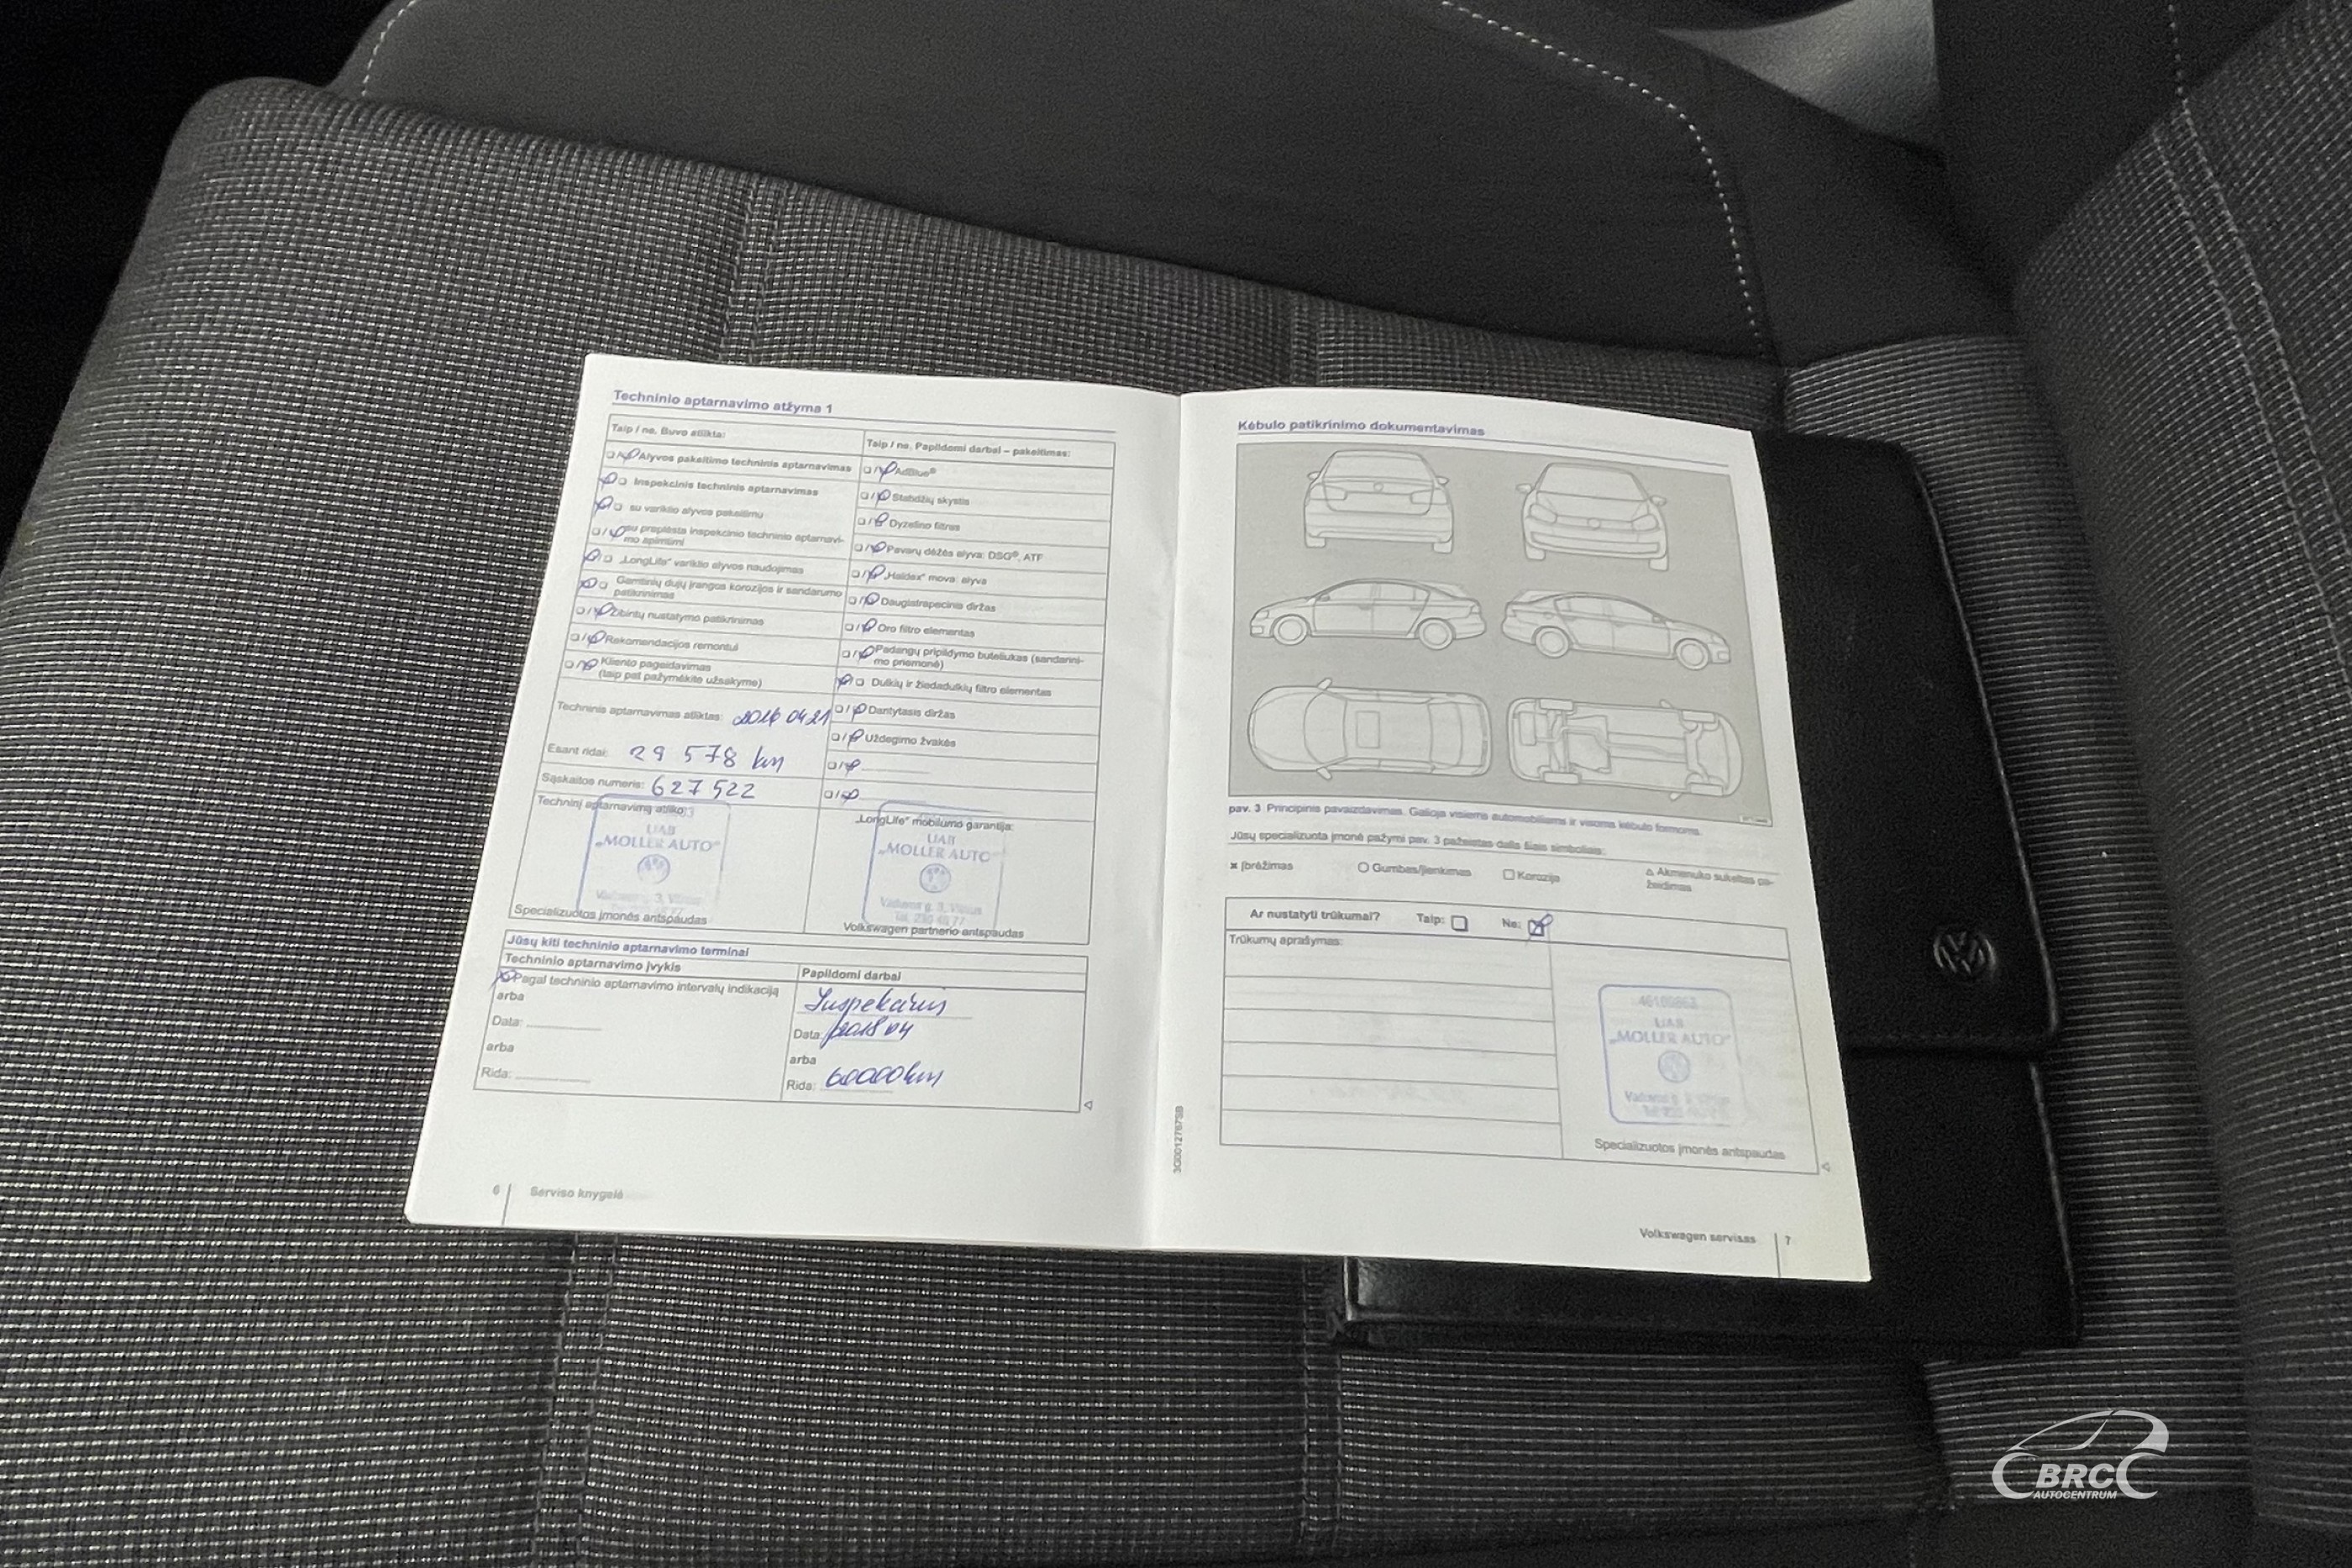 Techninio aptarnavimo atžyma 1
Taip / ne. Buvo atlikta:
Alyvos pakeitimo techninis aptarnavimas
Inspekcinis techninis aptarnavimas
su variklio alyvos pakeitimu
su praplėsta inspekcinio techninio aptarnavi-
mo apimtimi
„LongLife“ variklio alyvos naudojimas
Gamtinių dujų įrangos korozijos ir sandarumo
patikrinimas
Žibintų nustatymo patikrinimas
Rekomendacijos remontui
Kliento pageidavimas
(taip pat pažymėkite užsakyme)
Techninis aptarnavimas atliktas:
Esant ridai: 29 578 km
Sąskaitos numeris: 627522
Techninį aptarnavimą atliko:
UAB
„MOLLER AUTO“
Specializuotos įmonės antspaudas
Taip / ne. Papildomi darbai – pakeitimas:
AdBlue®
Stabdžių skystis
Dyzelino filtras
Pavarų dėžės alyva: DSG®, ATF
„Haldex“ mova: alyva
Daugiatrapecinis diržas
Oro filtro elementas
Padangų pripildymo buteliukas (sandarini-
mo priemonė)
Dulkių ir žiedadulkių filtro elementas
Dantytasis diržas
Uždegimo žvakės
„LongLife“ mobilumo garantija:
UAB
„MOLLER AUTO“
Volkswagen partnerio antspaudas
Jūsų kiti techninio aptarnavimo terminai
Techninio aptarnavimo įvykis
Pagal techninio aptarnavimo intervalų indikaciją
arba
Data:
arba
Rida:
Papildomi darbai
Data: 2018 04
arba
Rida: 60000 km
6 Serviso knygelė
3G0012767SB
Kėbulo patikrinimo dokumentavimas
pav. 3 Principinis pavaizdavimas. Galioja visiems automobiliams ir visoms kėbulo formoms.
Jūsų specializuota įmonė pažymi pav. 3 pažeistas dalis šiais simboliais:
Įbrėžimas
Gumbas/įlenkimas
Korozija
Akmenuko sukeltas pa-
žeidimas
Ar nustatyti trūkumai? Taip: Ne:
Trūkumų aprašymas:
UAB
„MOLLER AUTO“
Specializuotos įmonės antspaudas
Volkswagen servisas 7
BRC
AUTOCENTRUM